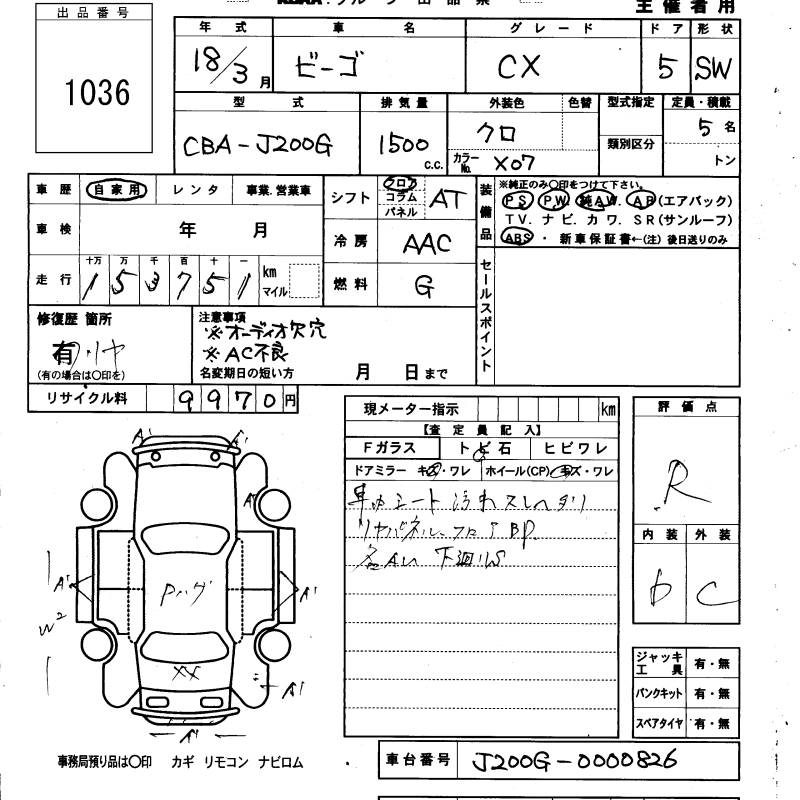 主催者用
出品番号
1036
年式 車名 グレード ドア 形状
18/3月 ビーゴ CX 5 SW
型式 排気量 外装色 色替 型式指定 定員・積載
CBA-J200G 1500 c.c. クロ 類別区分 5名
カラーNo. X07 トン
車歴 自家用 レンタ 事業.営業車
シフト フロア コラム パネル AT
装備品 ※純正のみ〇印をつけて下さい。
PS PW 純AW. AB(エアバック)
TV. ナビ. カワ. SR(サンルーフ)
ABS ・ 新車保証書←(注) 後日送りのみ
車検 年 月
冷房 AAC
走行 十万 万 千 百 十 一
1 5 3 7 5 1 km マイル
燃料 G
セールスポイント
修復歴 箇所
有 リヤ
(有の場合は〇印を)
注意事項
※オーディオ欠穴
※AC不良
名変期日の短い方 月 日まで
リサイクル料 9970円
現メーター指示 km
【査定員記入】
Fガラス トビ石 ヒビワレ
ドアミラー キズ・ワレ ホイール(CP) キズ・ワレ
車内シート汚れスレヘタリ
リヤパネル、フロアBP.
下廻りS
評価点
R
内装 外装
D C
A' A'
A'
A' A'
W2
Pハゲ
XX
A'
A'
ジャッキ工具 有・無
パンクキット 有・無
スペアタイヤ 有・無
事務局預り品は〇印 カギ リモコン ナビロム
車台番号 J200G-0000826